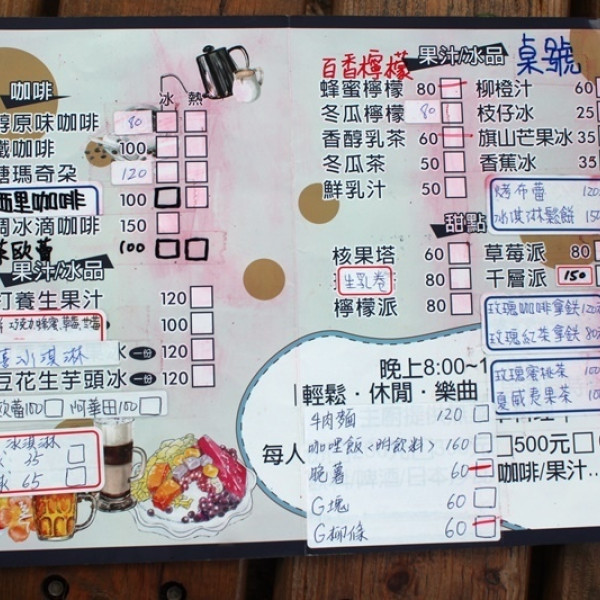 咖啡
冰 熱
醇原味咖啡 80
鐵咖啡 100
糖瑪奇朵 120
西里咖啡 100
調冰滴咖啡 150
歐蕾 100
果汁/冰品
打養生果汁 120
100
冰淇淋 冰一份 120
豆花生芋頭冰一份 120
歐蕾100 阿華田100
冰淇淋
35
冰 65
百香檸檬
果汁/冰品
桌號
蜂蜜檸檬 80
冬瓜檸檬 80
香醇乳茶 60
冬瓜茶 50
鮮乳汁 50
柳橙汁 60
枝仔冰 25
旗山芒果冰 35
香蕉冰 35
烤布蕾 120
冰淇淋鬆餅 150
甜點
核果塔 60
生乳卷 80
檸檬派 80
草莓派 80
千層派 150
玫瑰咖啡拿鐵 120
玫瑰紅茶拿鐵 80
玫瑰蜜桃茶 100
夏威夷果茶
晚上8:00~1
輕鬆・休閒・樂曲
每人
牛肉麵 120
咖哩飯(附飲料) 160
脆薯 60
G塊 60
G柳條 60
500元
咖啡/果汁...